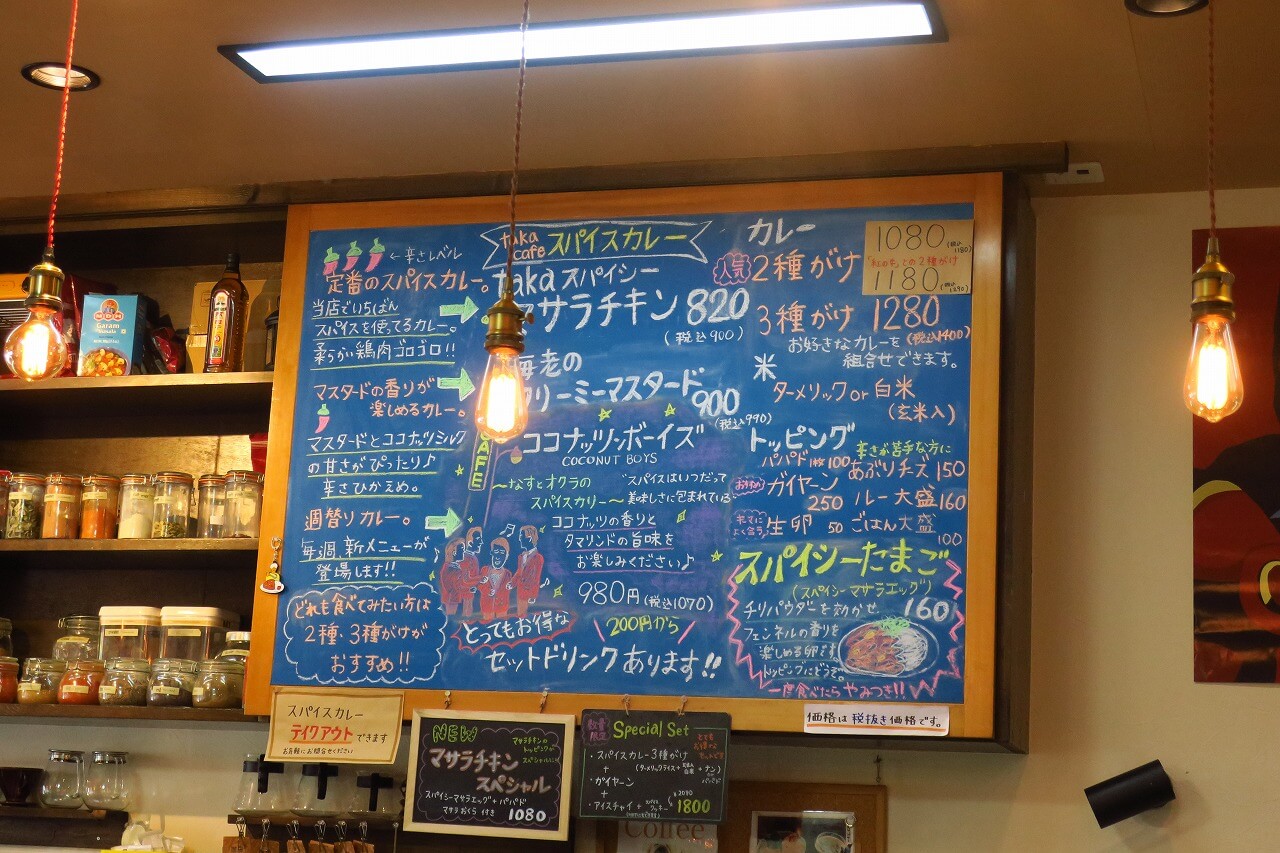 ←辛さレベル
定番のスパイスカレー。
当店でいちばん
スパイスを使ってるカレー。
柔らかい鶏肉ゴロゴロ!!
マスタードの香りが
楽しめるカレー。
マスタードとココナッツミルク
の甘さがぴったり♪
辛さひかえめ。
週替りカレー。
毎週、新メニューが
登場します!!
どれも食べてみたい方は
2種・3種がけが
おすすめ!!
taka
cafe スパイスカレー
taka スパイシー
マサラチキン 820
(税込900)
海老の
クリーミーマスタード
900
(税込990)
CAFE
ココナッツッボーイズ
COCONUT BOYS
〜なすとオクラの
スパイスカリー〜
スパイスはいつだって
美味しさに包まれている
ココナッツの香りと
タマリンドの旨味を
お楽しみください♪
980円(税込1070)
とってもお得な
200円から
セットドリンクあります!!
カレー
人気 2種がけ
1080 (税込1180)
との2種がけ
1180 (税込1290)
3種がけ 1280
(税込1400)
お好きなカレーを
組合せできます。
＊
ターメリックor白米
(玄米入)
トッピング
辛さが苦手な方に
パパド1枚100
あぶりチーズ150
おすすめ ガイヤーン
250
ルー大盛160
生卵 50
ごはん大盛
100
スパイシーたまご
(スパイシーマサラエッグ)
チリパウダーを効かせ 160
フェンネルの香りを
楽しめる卵です
トッピングにどうぞ。
一度食べたら やみつき!!
価格は税抜き価格です。
Garam
Masala
スパイスカレー
テイクアウトできます
お気軽にお問合せください
NEW
マサラチキンの
トッピングが
スペシャルに!
マサラチキン
スペシャル
スパイシーマサラエッグ+パパド
マサラおくら 付き 1080
数量
限定 Special Set
・スパイスカレー3種がけ
+
・ガイヤーン
+
・アイスチャイ+
1800
Coffee